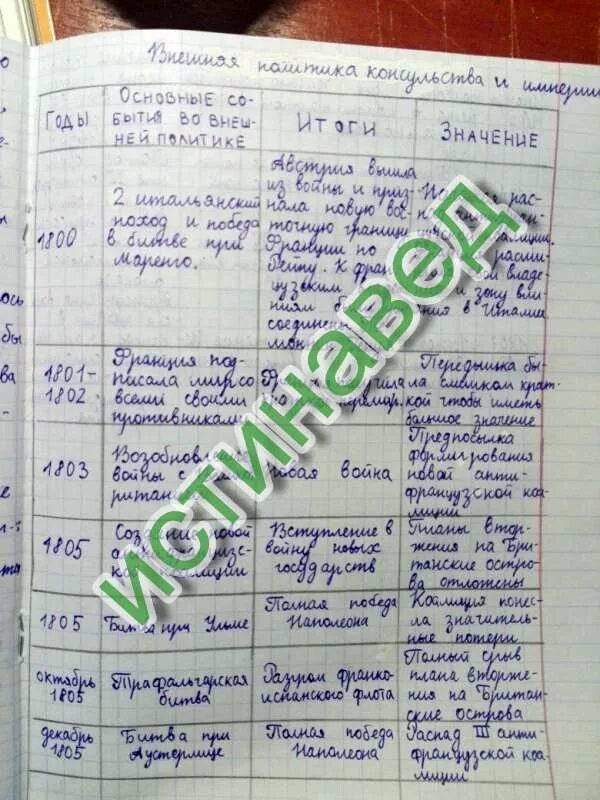 Внешняя политика консульства и империи
Годы
Основные со-
бытия во внеш-
ней политике
Итоги
Значение
1800
2 итальянский
поход и победа
в битве при
Маренго.
Австрия вышла
из войны и приз-
нала новую вос-
точную границу
Франции по
Рейну. К
соединен
рас-
коалиции.
и зону вли-
в Италии
1801-
1802
Франция под-
писала мир со
всеми своими
противниками
Передышка бы-
ла слишком крат-
кой чтобы иметь
большое значение
1803
Возобновление
войны с
Новая война
Предпосылка
формирования
новой анти-
французской коа-
лиции
1805
Создание новой
коалиции
Вступление в
войну новых
государств
Планы втор-
жения на Бри-
танские остро-
ва отложены
1805
Битва при Ульме
Полная победа
Наполеона
Коалиция понес-
ла значитель-
ные потери
октябрь
1805
Трафальгарская
битва
Разгром франко-
испанского флота
Полный срыв
плана вторже-
ния на Британ-
ские острова
декабрь
1805
Битва при
Аустерлице
Полная победа
Наполеона
Распад III анти-
французской коа-
лиции
истинавед